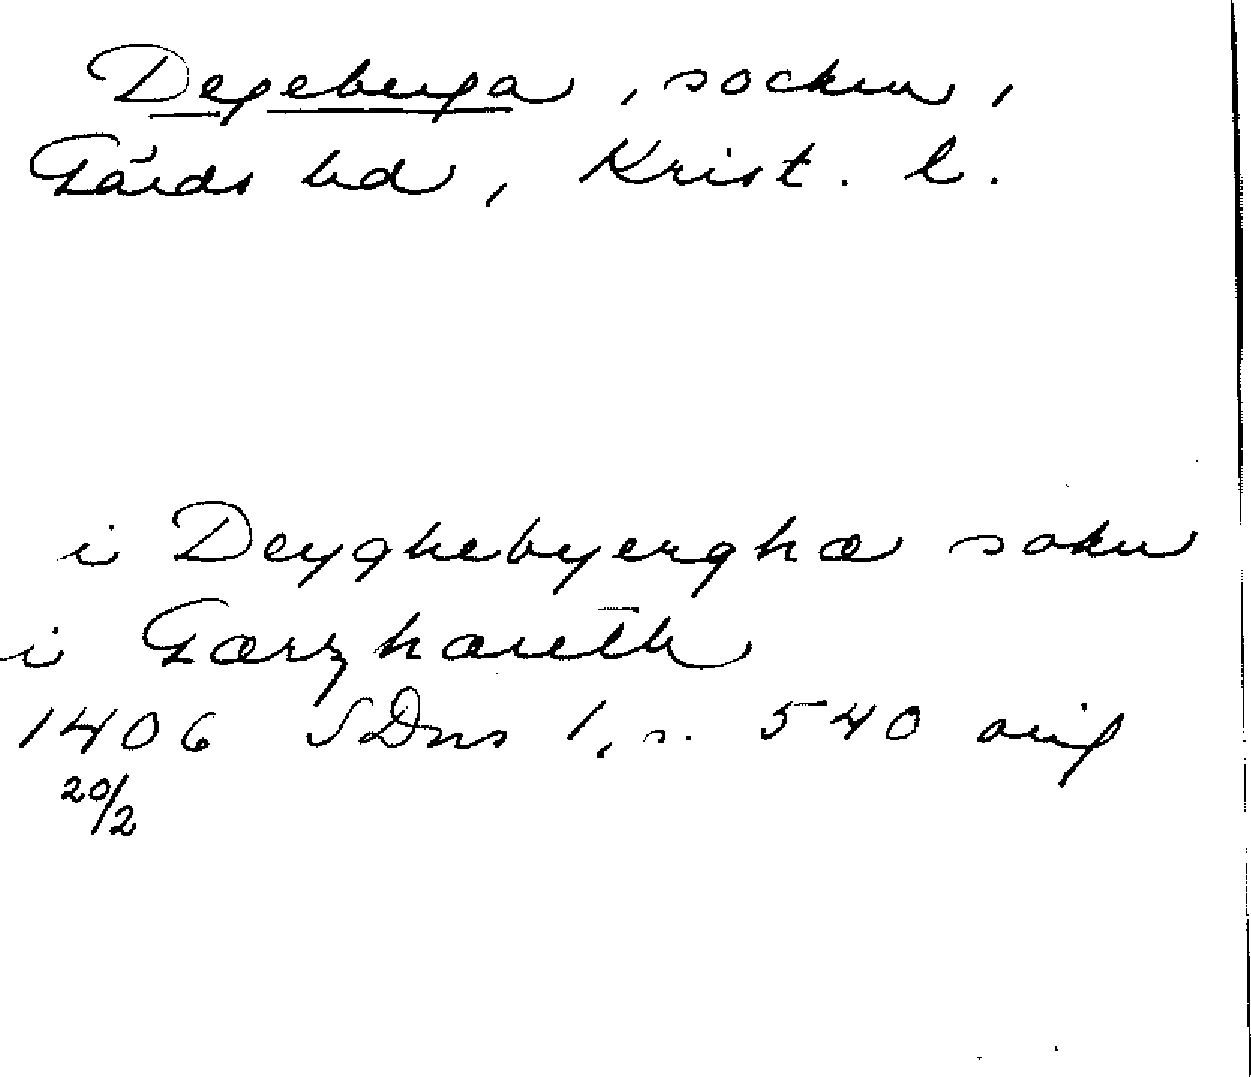 Degeberga, socken,
Gärds hd, Krist. l.
i Deyghebyerghæ sokn
i Gærzhæreth
1406 SDns 1, s. 540 orig
20/2